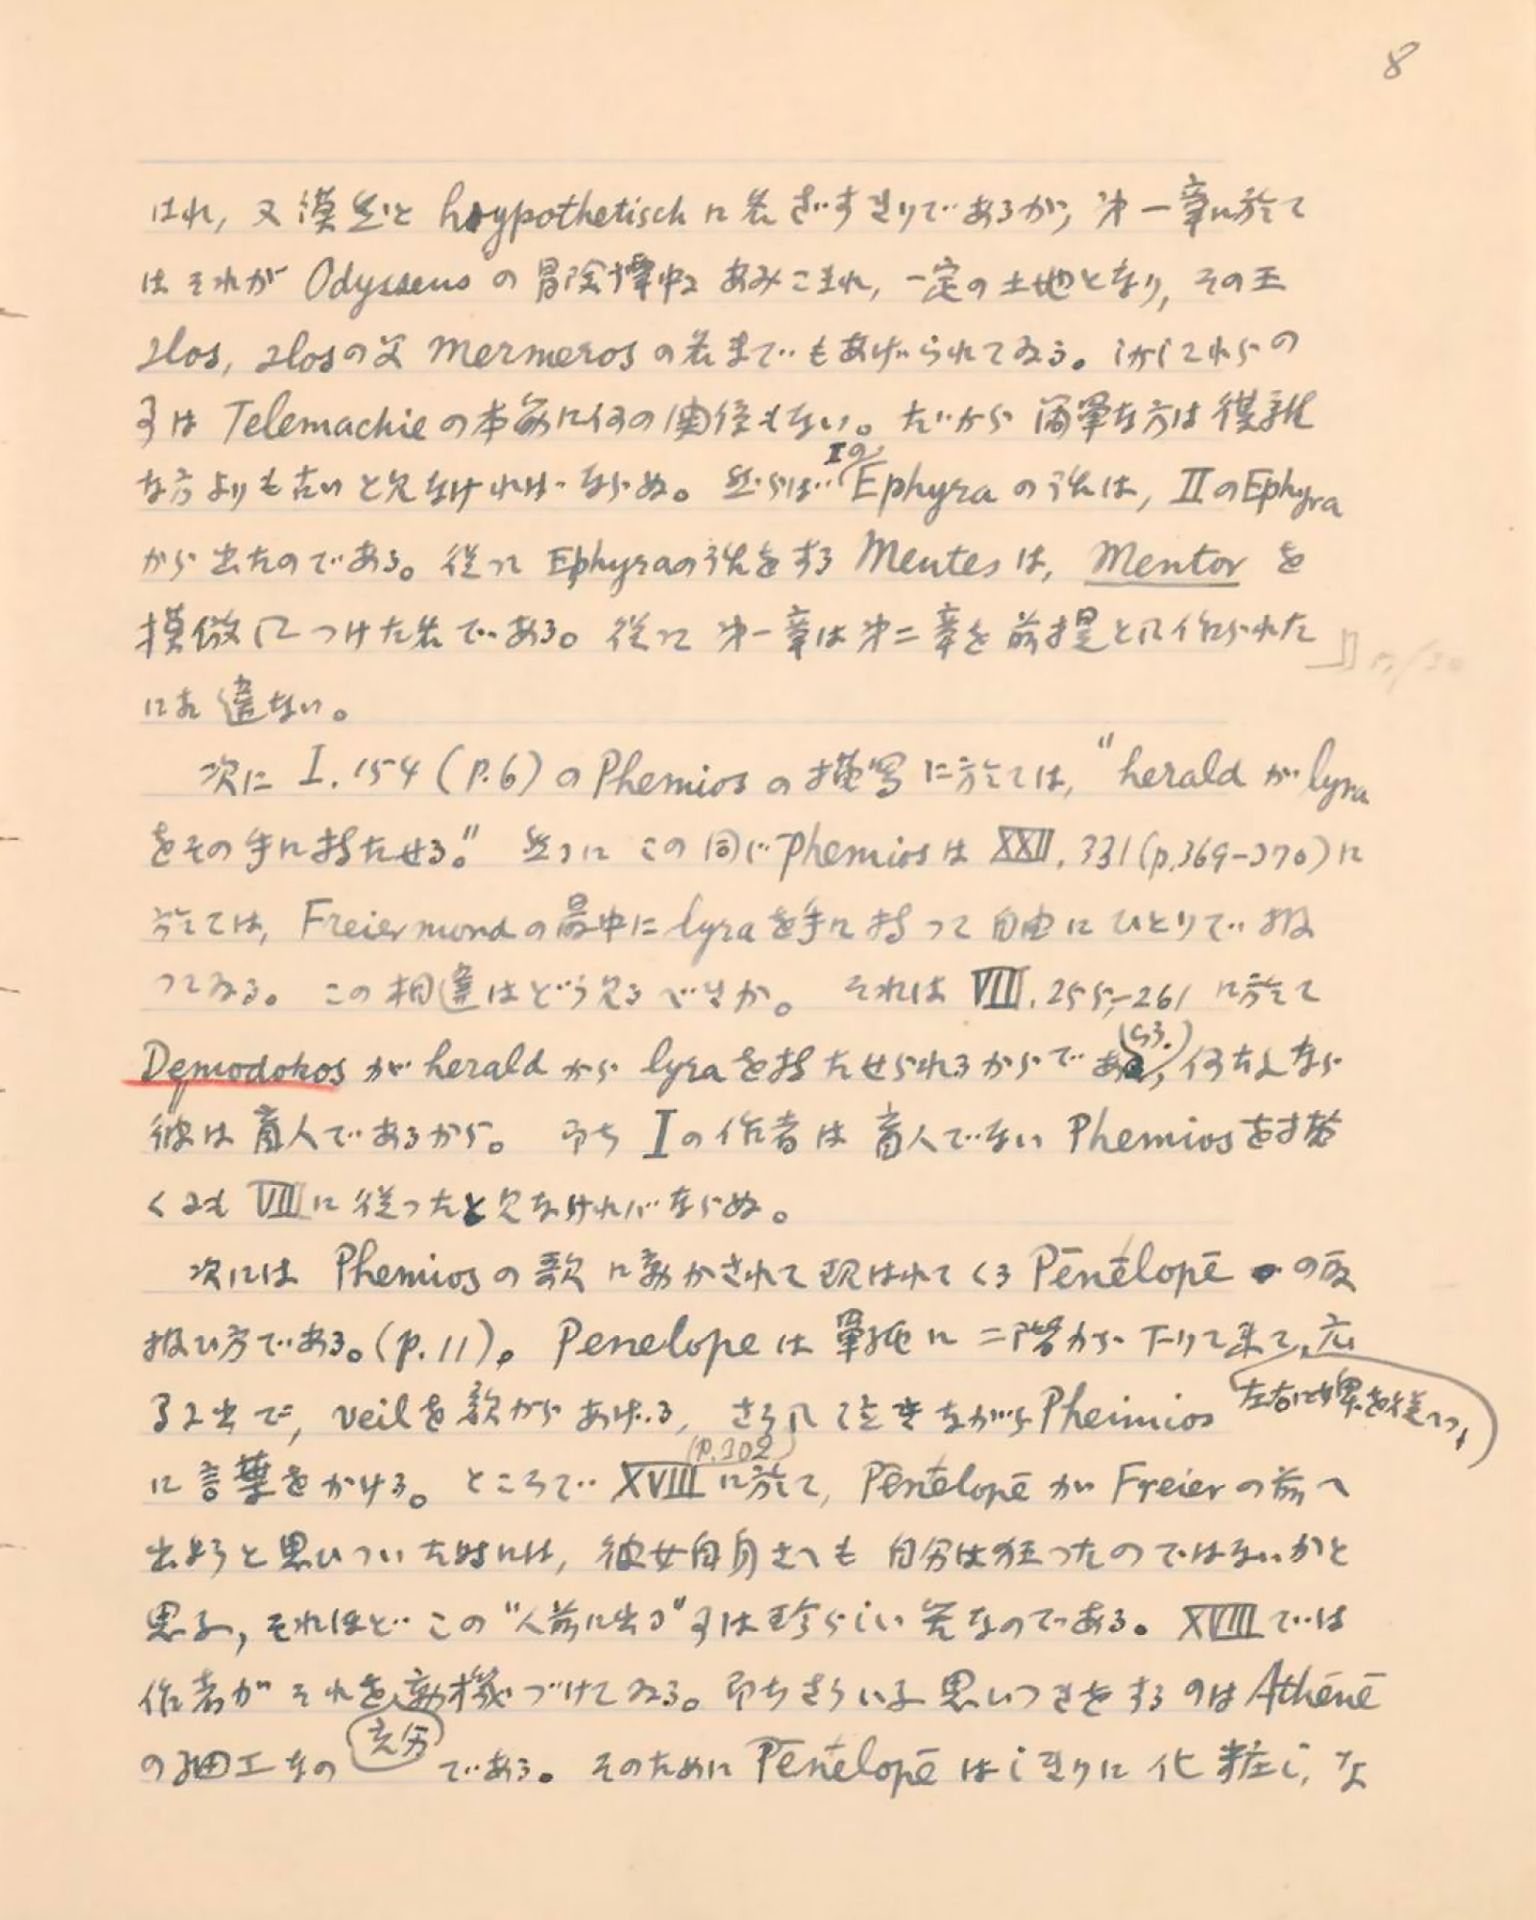 8
はれ, 又漠然と hypothetisch に名ざすきりであるが, 第一章に於て
はそれが Odysseus の冒険譚中に あみこまれ, 一定の土地となり, その王
Ilos, Ilosの父 Mermeros の名までもあげられてゐる。しかしこれらの
事は Telemachie の本筋に何の関係もない。だから 簡単な方は複雑
な方よりも古いと見なければならぬ。然らば Iの Ephyra の話は, IIのEphyra
から出たのである。従って Ephyraの話をする Mentes は, Mentor を
模倣してつけた名である。従って 第一章は第二章を前提として作られた
にお違ない。
次に I. 154 (p.6) の Phemios の描写に於ては, "herald が lyra
をその手に持たせる。" 然るに この同じ Phemios は XXII. 331 (p.369-370) に
於ては, Freiermord の最中に lyra を手に持って自由にひとりで扱
つてゐる。この相違はどう見るべきか。それは VIII. 255-261 に於て
Demodokos が herald から lyra を持たせられるからである, (53.) 何となれば
彼は盲人であるから。即ち I の作者は盲人でない Phemios を描
くにも VIII に従ったと見なければならぬ。
次には Phemios の歌に動かされて現はれてくる Pēnelopē の取
扱ひ方である。(p. 11)。Penelope は 単純に 二階から下りて来て, 左右に婢を従へつゝ, 広
るま出で, veil を 顔から あげる, さうして泣きながら Phemios
に言葉をかける。ところで XVIII (p.302) に於て, Pēnelopē が Freier の前へ
出ようと思ひついた時には, 彼女自身さへも 自分は狂ったのではないかと
思ふ, それほど この "人前に出る" 事は珍らしい 事なのである。XVIII では
作者が それを充分動機づけてゐる。即ちさういふ思ひつきをするのは Athēnē
の細工なのである。そのために Pēnelopē はしきりに 化粧し, な